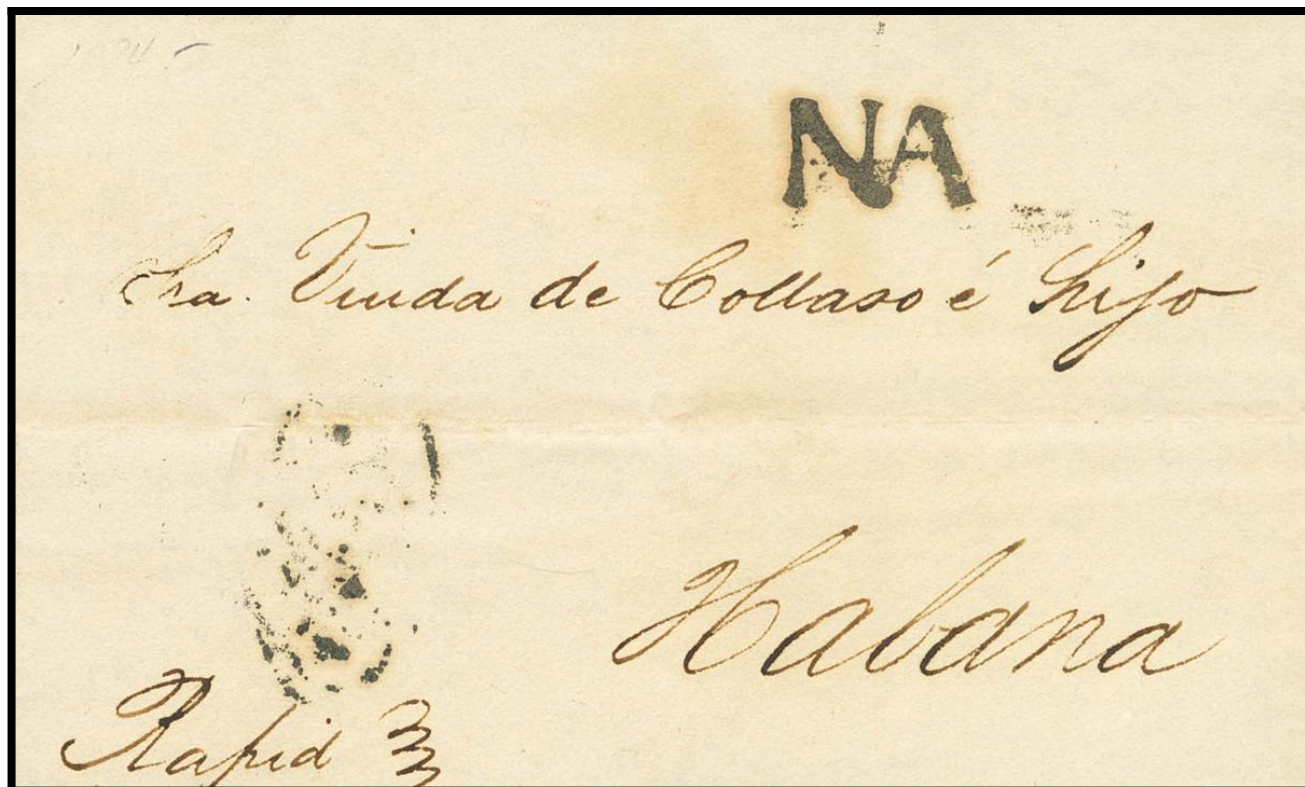 NA
Sra. Viuda de Collaso é hijo
Habana
Rapid